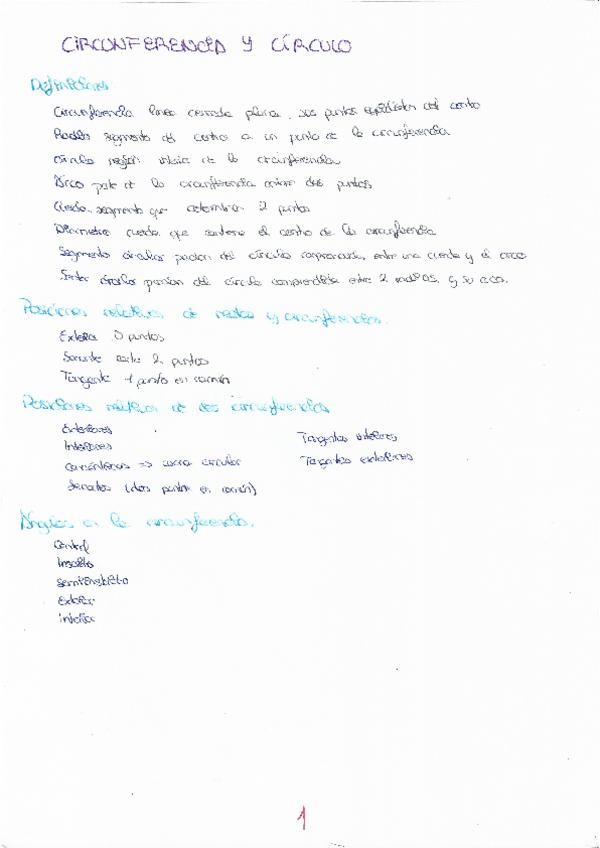 CIRCUNFERENCIA Y CÍRCULO
Definiciones
Circunferencia línea cerrada plana, sus puntos equidistan del centro
Radio segmento del centro a un punto de la circunferencia
Círculo región interior de la circunferencia
Arco parte de la circunferencia entre dos puntos
Cuerda segmento que 2 puntos
Diámetro cuerda que contiene el centro de la circunferencia
Segmento circular porción del círculo comprendida entre una cuerda y el arco
Sector circular porción del círculo comprendida entre 2 radios y su arco.
Posiciones relativas de rectas y circunferencias.
Exterior 0 puntos
Secante 2 puntos
Tangente 1 punto en común
Posiciones relativas de dos circunferencias
Exteriores
Interiores
Tangentes interiores
concéntricas => corona circular
Tangentes exteriores
Secantes (dos puntos en común)
Ángulos en la circunferencia.
Central
Inscrito
semiinscrito
Exterior
interior
1